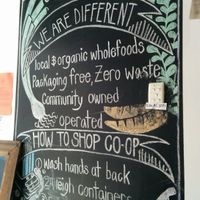 WE ARE DIFFERENT
local & organic wholefoods
Packaging free, Zero Waste
Community owned
& operated
HOW TO SHOP CO-OP
1 wash hands at back
2 weigh containers